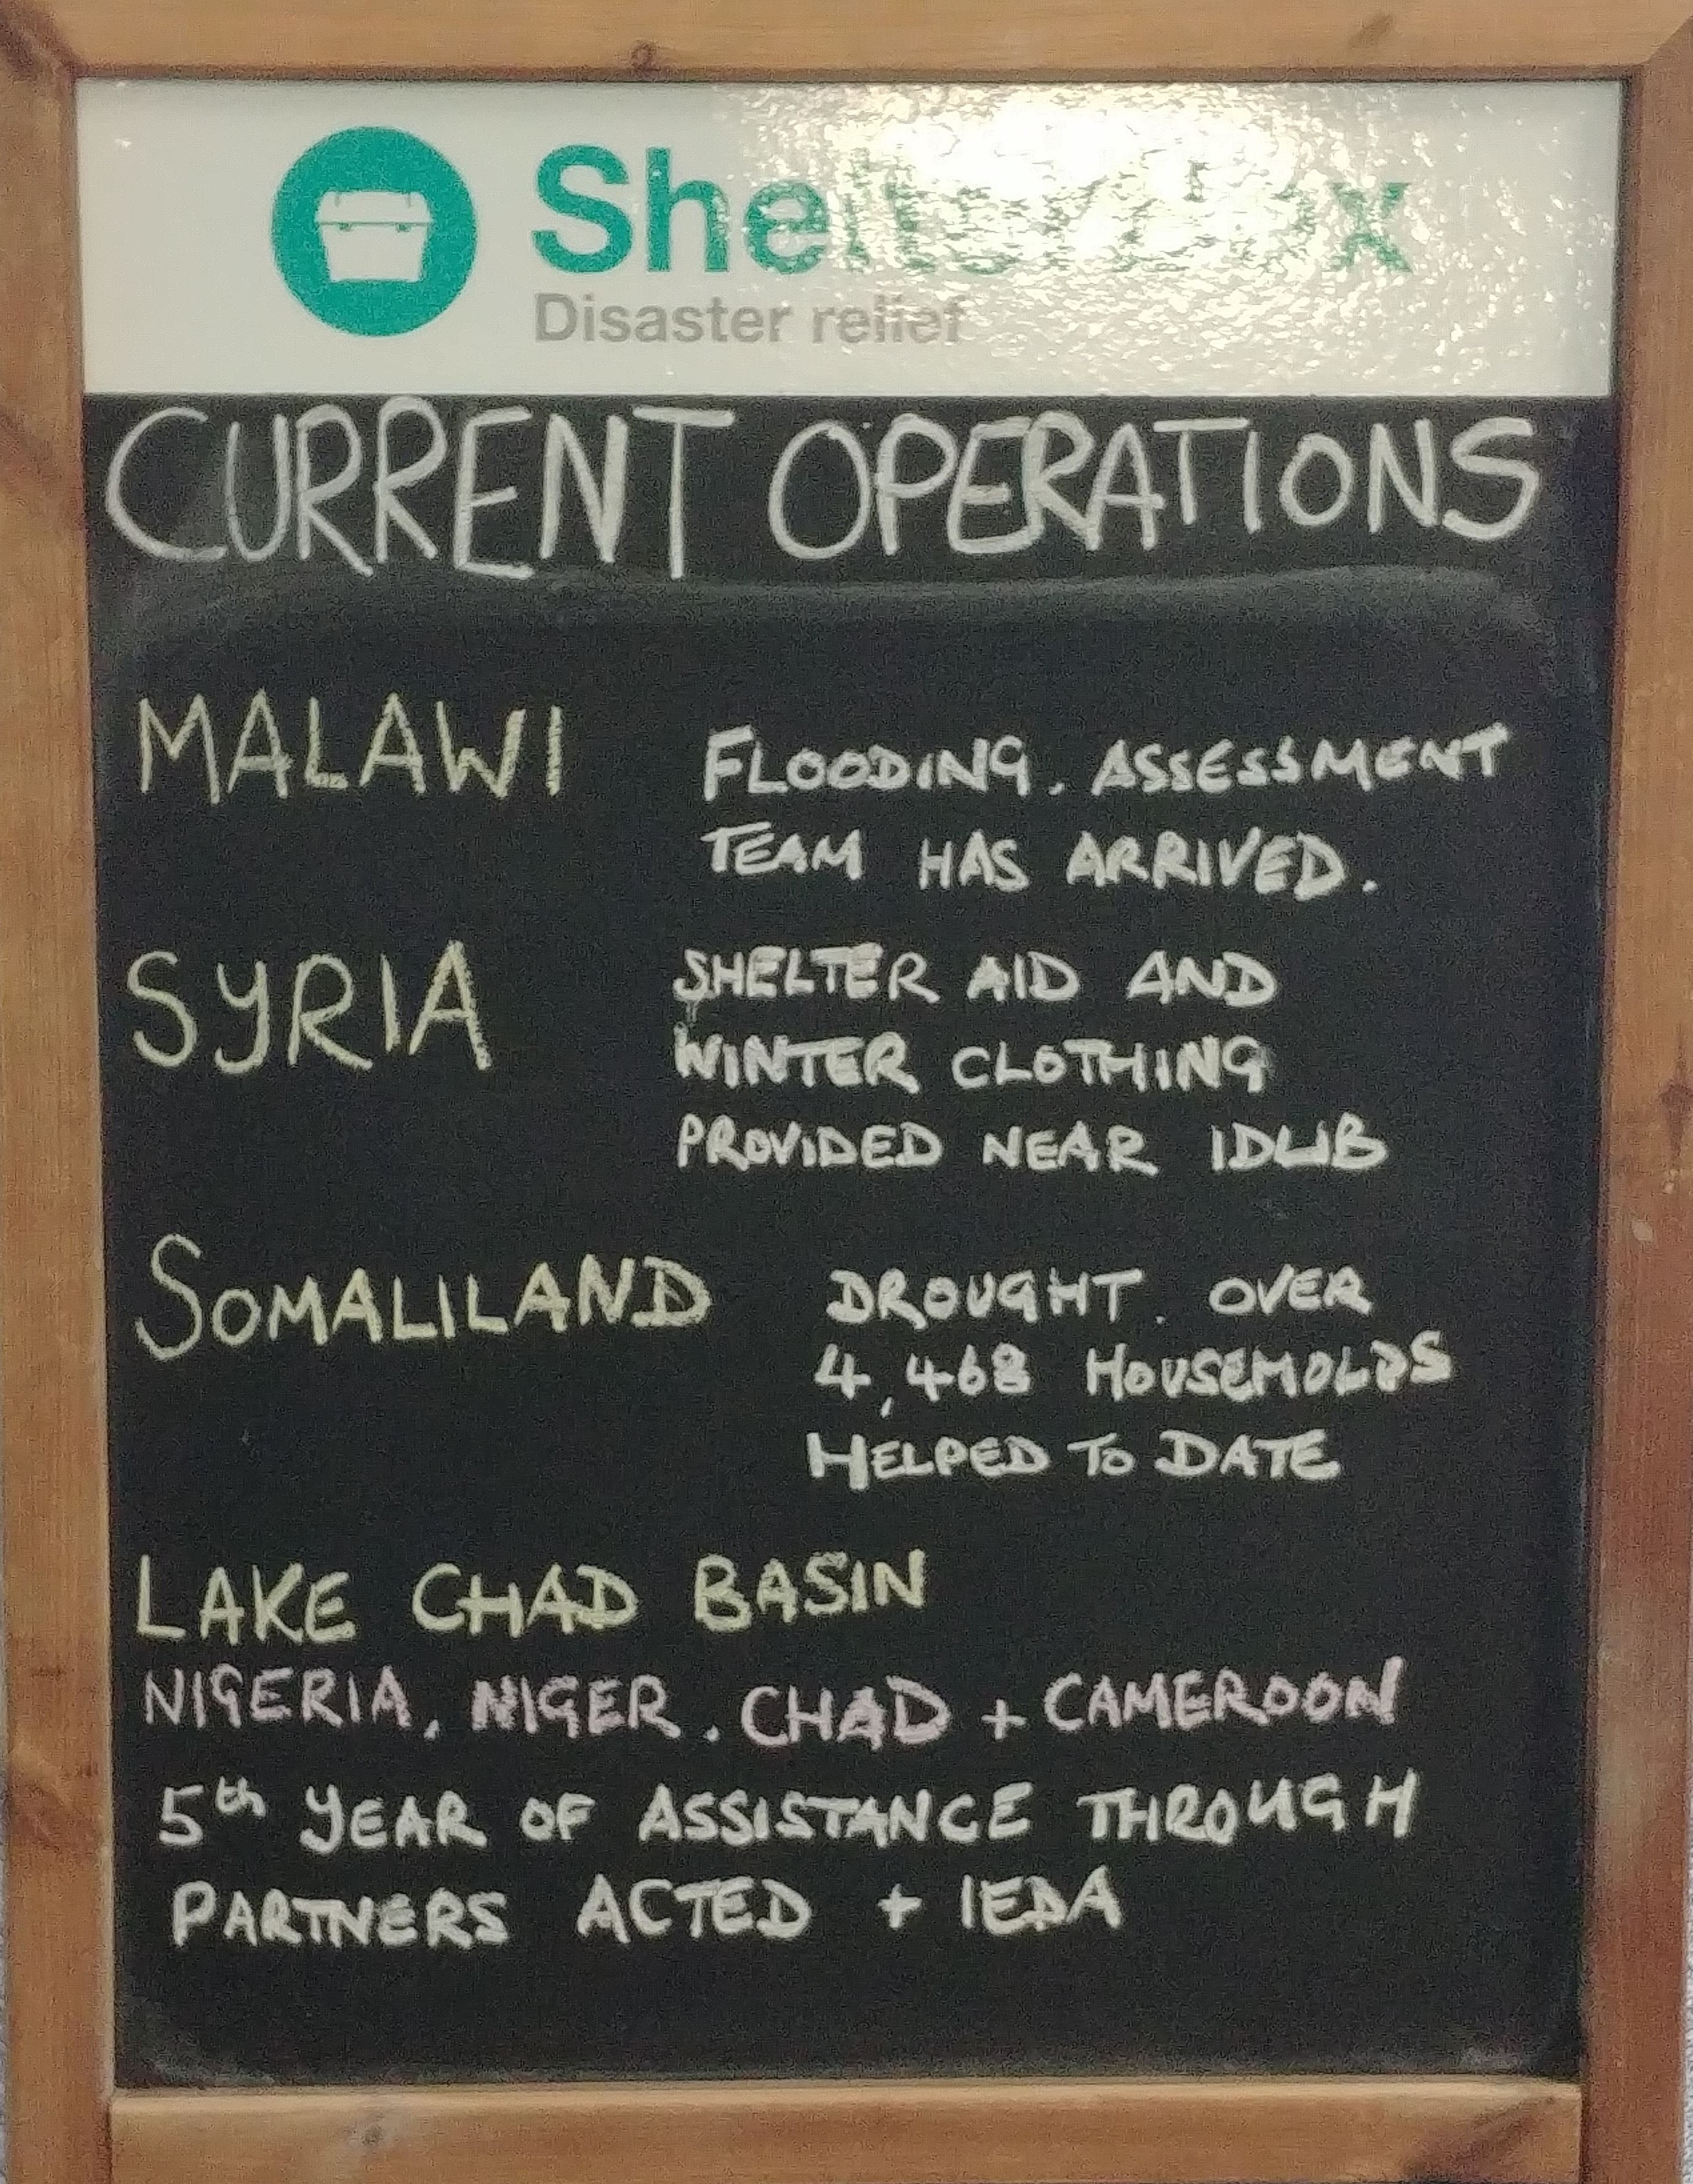 ShelterBox
Disaster relief
CURRENT OPERATIONS
MALAWI FLOODING. ASSESSMENT
TEAM HAS ARRIVED.
SYRIA SHELTER AID AND
WINTER CLOTHING
PROVIDED NEAR IDLIB
SOMALILAND DROUGHT. OVER
4,468 HOUSEHOLDS
HELPED TO DATE
LAKE CHAD BASIN
NIGERIA, NIGER, CHAD + CAMEROON
5th YEAR OF ASSISTANCE THROUGH
PARTNERS ACTED + IEDA